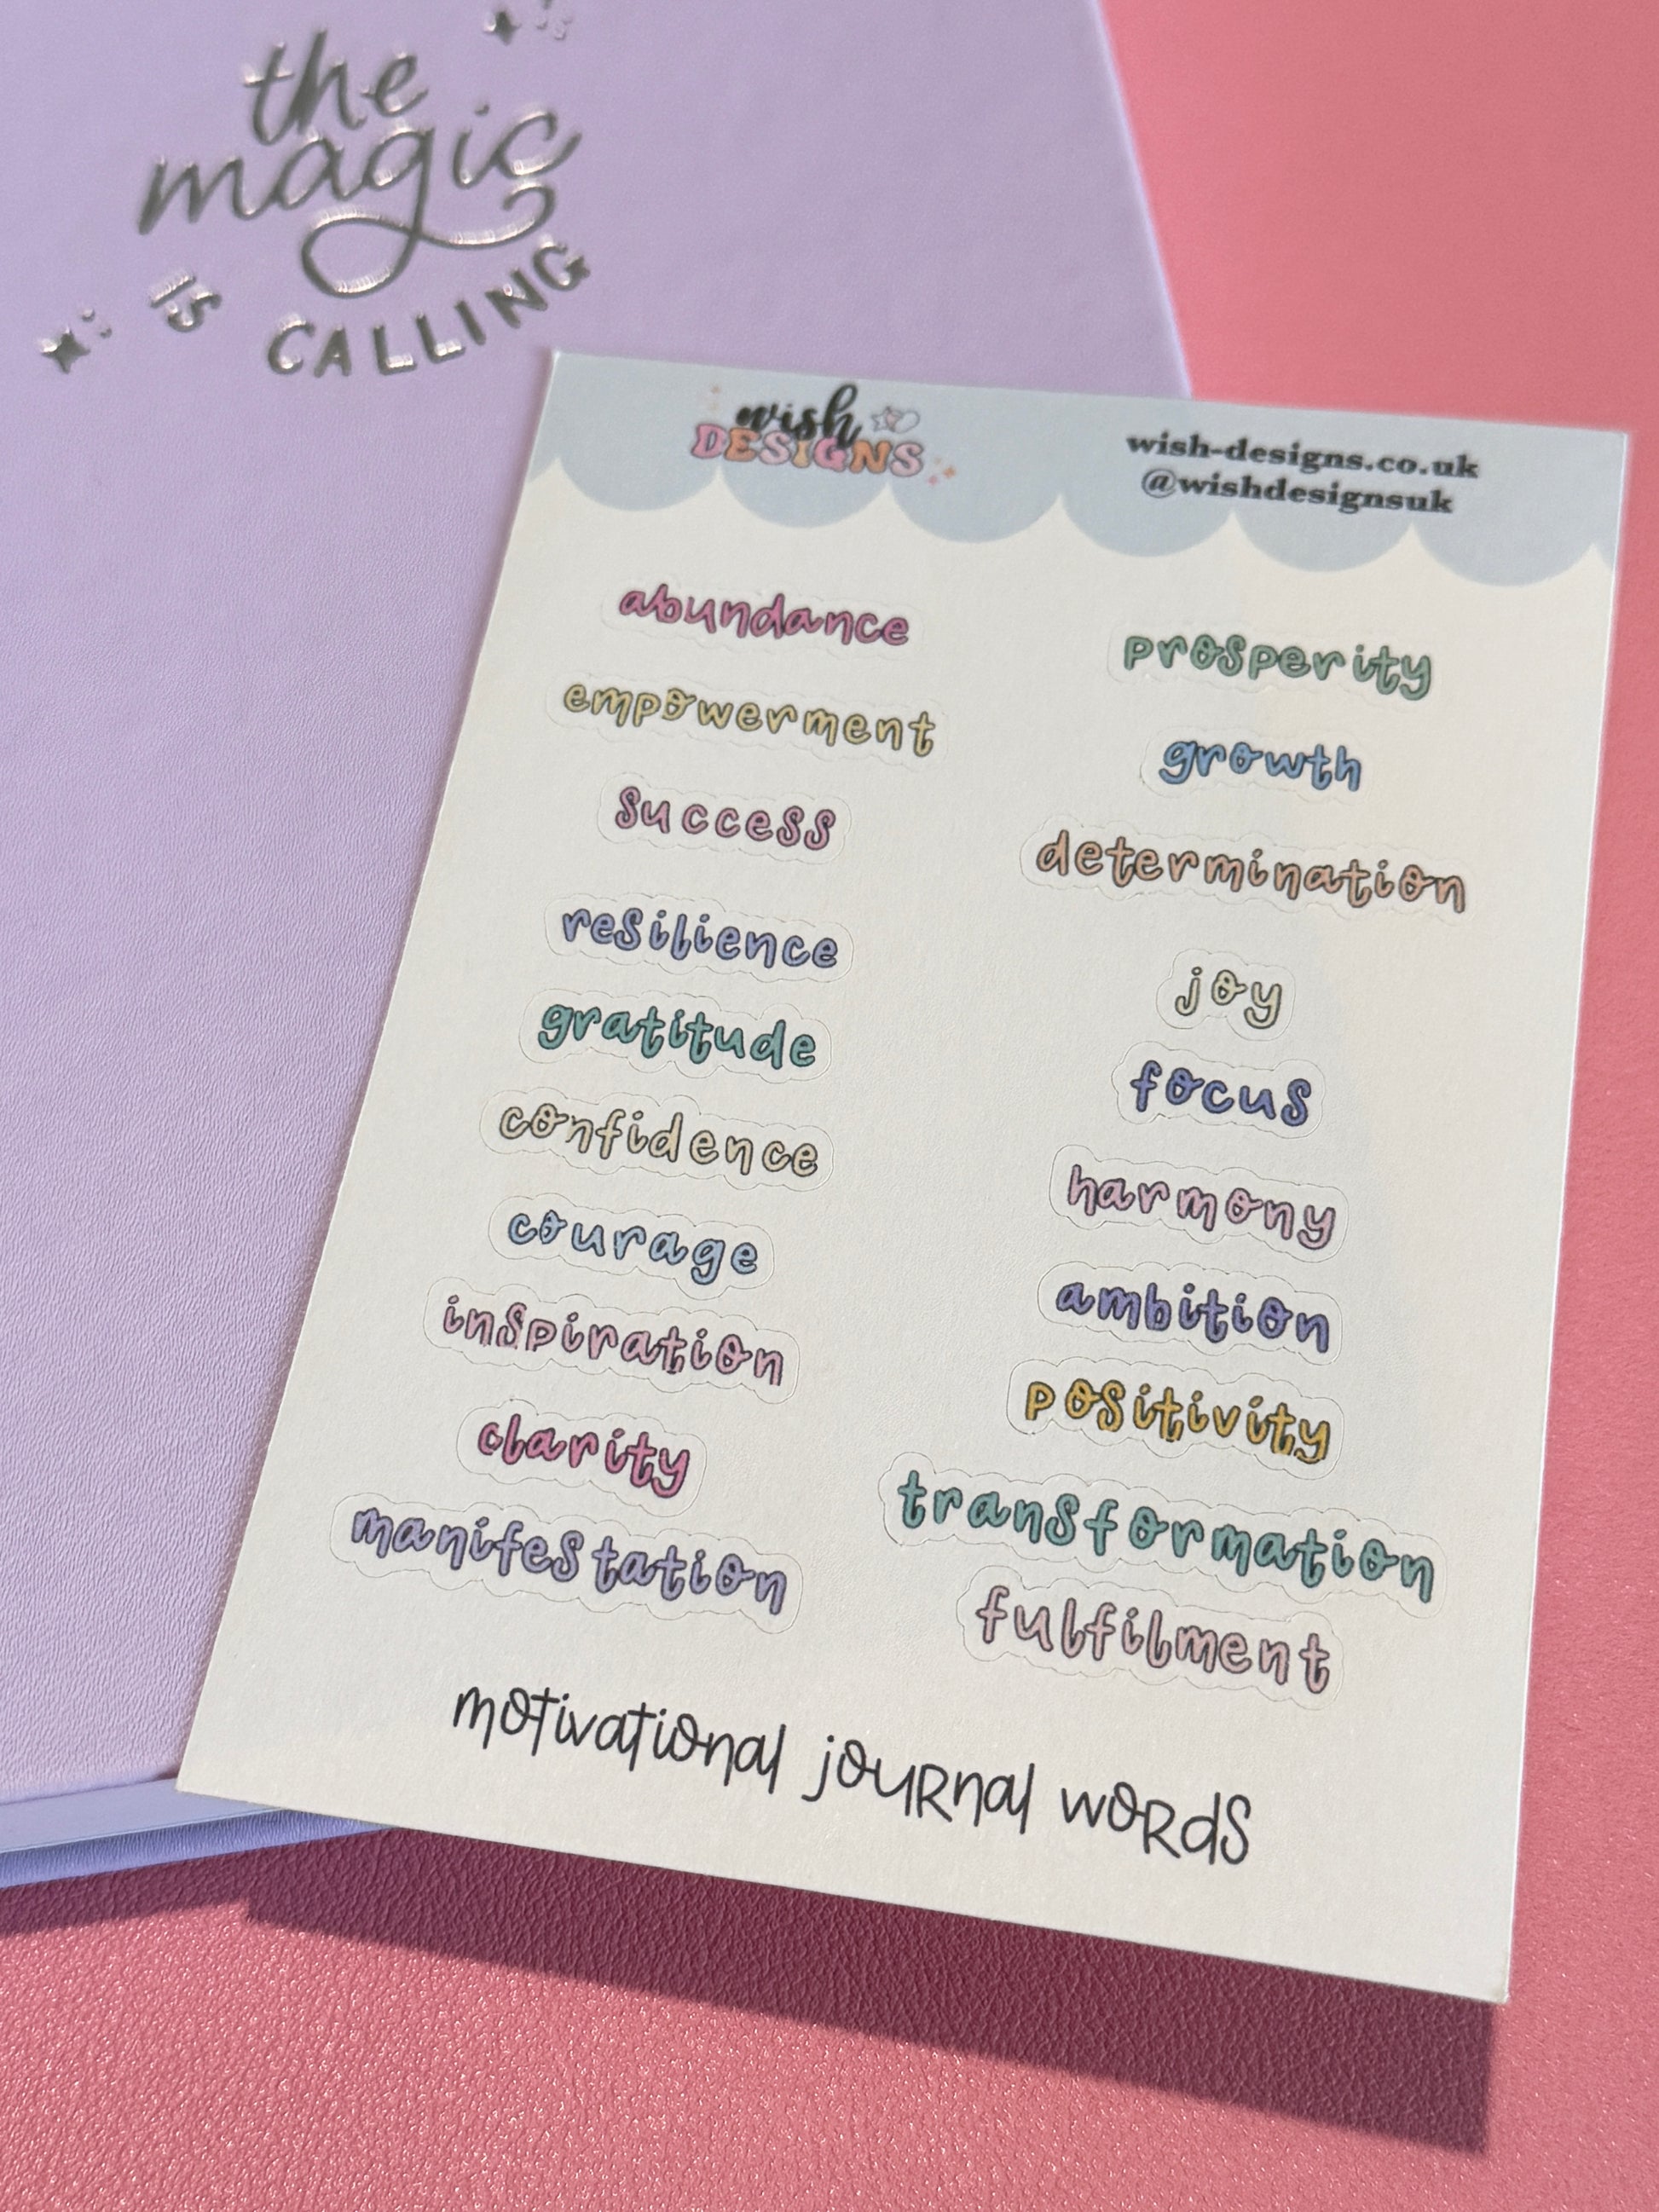 the
magic
is CALLING
wish
DESIGNS
wish-designs.co.uk
@wishdesignsuk
abundance
empowerment
success
resilience
gratitude
confidence
courage
inspiration
clarity
manifestation
prosperity
growth
determination
joy
focus
harmony
ambition
positivity
transformation
fulfilment
motivational journal words